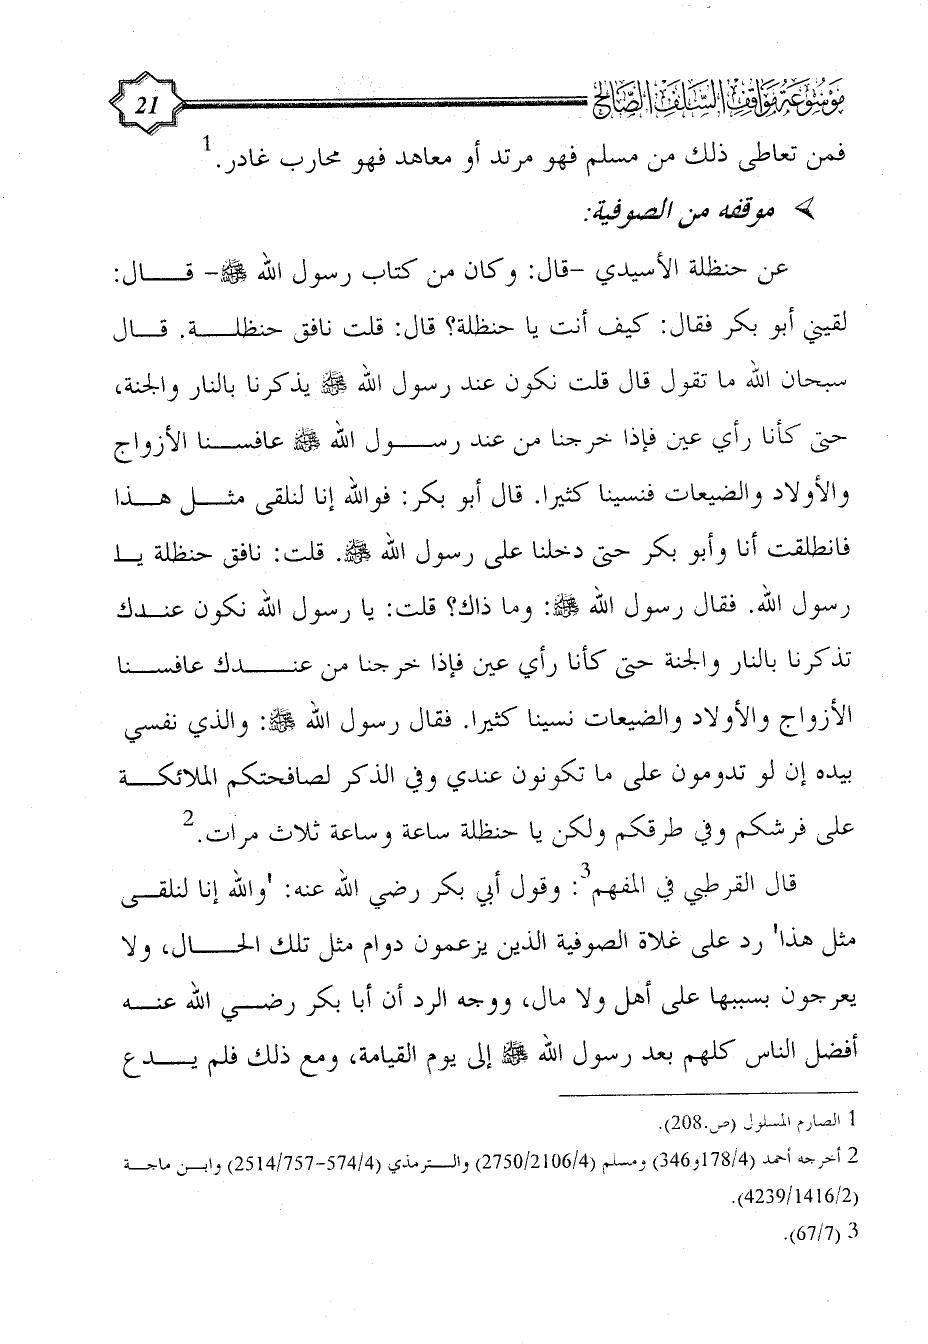 موسوعة مواقف السلف الصالح
21
فمن تعاطى ذلك من مسلم فهو مرتد أو معاهد فهو محارب غادر.1
موقفه من الصوفية:
عن حنظلة الأسيدي -قال: وكان من كتاب رسول الله ﷺ- قال:
لقيني أبو بكر فقال: كيف أنت يا حنظلة؟ قال: قلت نافق حنظلة. قال
سبحان الله ما تقول قال قلت نكون عند رسول الله ﷺ يذكرنا بالنار والجنة،
حتى كأنا رأي عين فإذا خرجنا من عند رسول الله ﷺ عافسنا الأزواج
والأولاد والضيعات فنسينا كثيرا. قال أبو بكر: فوالله إنا لنلقى مثل هذا
فانطلقت أنا وأبو بكر حتى دخلنا على رسول الله ﷺ. قلت: نافق حنظلة يا
رسول الله. فقال رسول الله ﷺ: وما ذاك؟ قلت: يا رسول الله نكون عندك
تذكرنا بالنار والجنة حتى كأنا رأي عين فإذا خرجنا من عندك عافسنا
الأزواج والأولاد والضيعات نسينا كثيرا. فقال رسول الله ﷺ: والذي نفسي
بيده إن لو تدومون على ما تكونون عندي وفي الذكر لصافحتكم الملائكة
على فرشكم وفي طرقكم ولكن يا حنظلة ساعة وساعة ثلاث مرات.2
قال القرطبي في المفهم3: وقول أبي بكر رضي الله عنه: 'والله إنا لنلقى
مثل هذا' رد على غلاة الصوفية الذين يزعمون دوام مثل تلك الحال، ولا
يعرجون بسببها على أهل ولا مال، ووجه الرد أن أبا بكر رضي الله عنه
أفضل الناس كلهم بعد رسول الله ﷺ إلى يوم القيامة، ومع ذلك فلم يدع
1 الصارم المسلول (ص.208).
2 أخرجه أحمد (178/4و346) ومسلم (2750/2106/4) والترمذي (574/4-2514/757) وابن ماجة
(4239/1416/2).
3 (67/7).